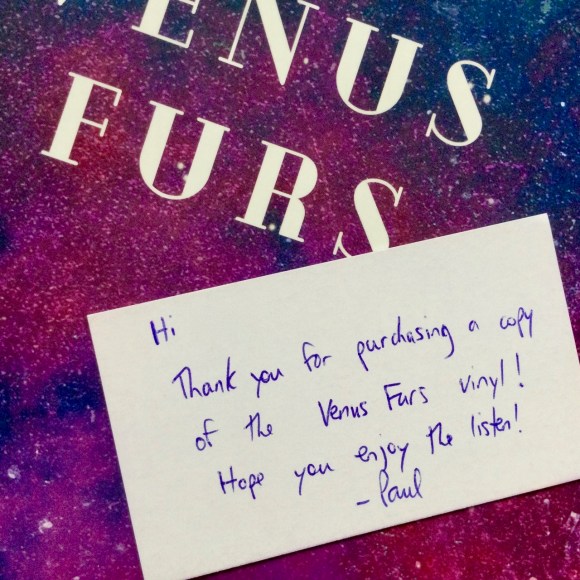 VENUS
FURS
Hi
Thank you for purchasing a copy
of the Venus Furs vinyl!
Hope you enjoy the listen!
- Paul